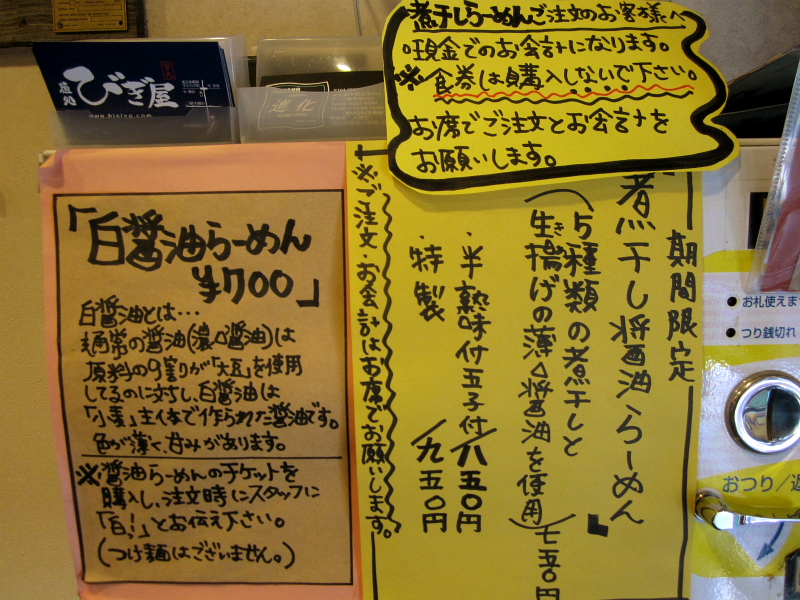 煮干しらーめんご注文のお客様へ
○現金でのお会計になります。
※食券は購入しないで下さい。
お席でご注文とお会計を
お願いします。
麺処
びぎ屋
進化
「白醤油らーめん
¥700」
白醤油とは…
通常の醤油(濃口醤油)は
原料の9割が「大豆」を使用
してるのに対し、白醤油は
「小麦」主体で作られた醤油です。
色が薄く、甘みがあります。
※醤油らーめんのチケットを
購入し、注文時にスタッフに
「白!」とお伝え下さい。
(つけ麺はございません。)
期間限定
煮干し醤油らーめん
(5種類の煮干しと
生き揚げの薄口醤油を使用)七五〇円
・半熟味付玉子付/八五〇円
・特製/九五〇円
※ご注文・お会計はお席でお願いします。
●お札使えま
●つり銭切れ
おつり/返